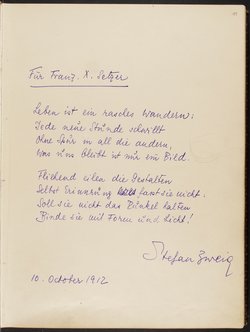 Für Franz. X. Setzer
Leben ist ein rasches Wandern:
Jede neue Stunde schwillt
Ohne Spur in all die andern,
Was uns bleibt ist nur ein Bild.
Fliehend eilen die Gestalten
Selbst Erinnrung fasst sie nicht.
Soll sie nicht das Dunkel halten
Binde sie mit Form und Licht!
Stefan Zweig
10. October 1912